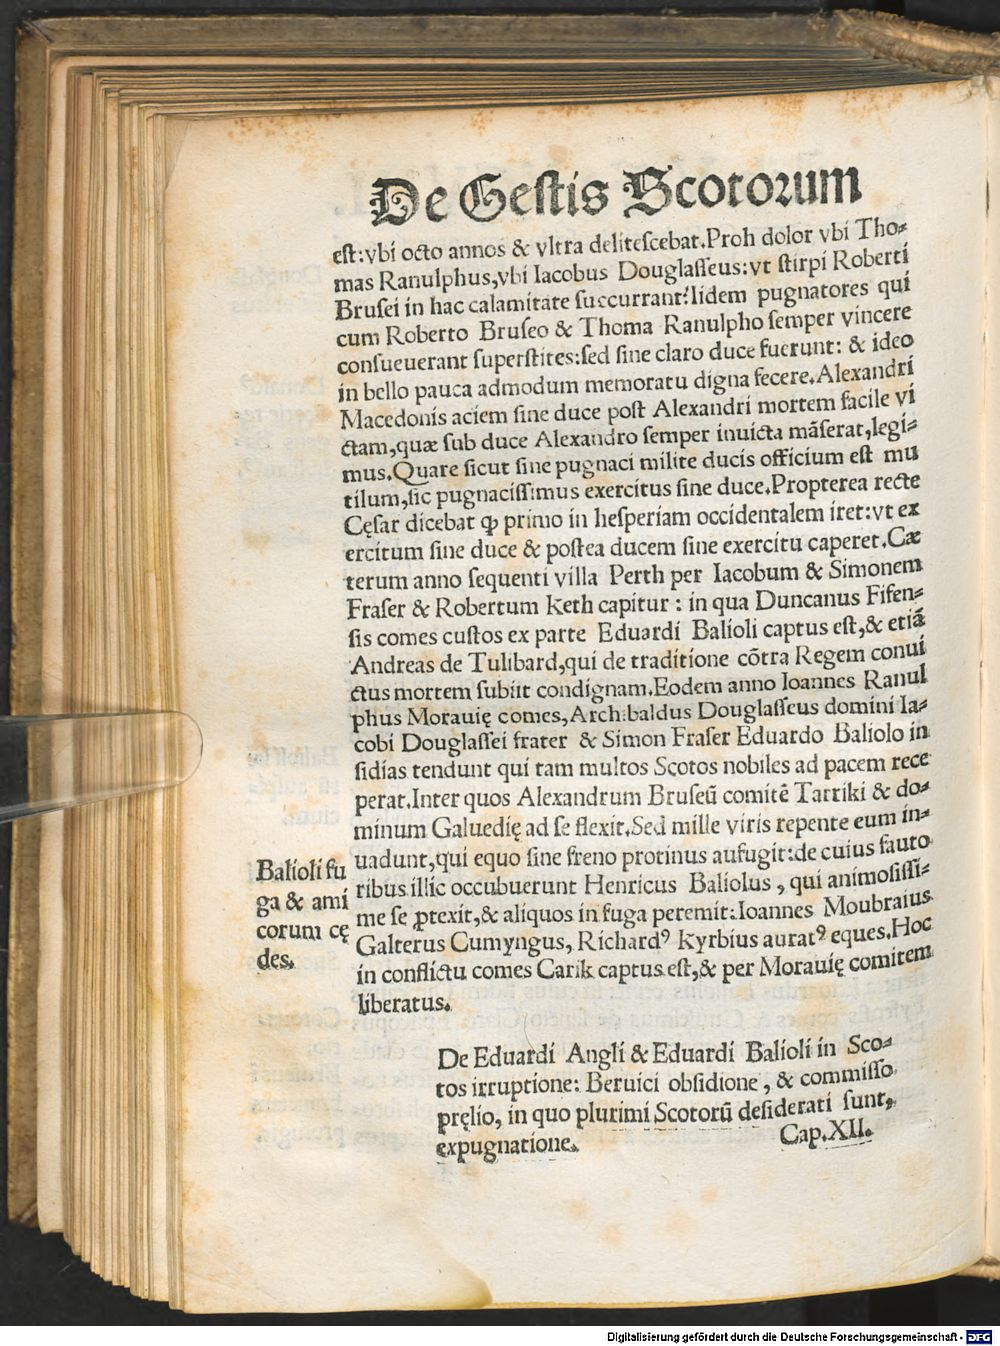 De Gestis Scotorum
est:vbi octo annos & vltra delitescebat.Proh dolor vbi Tho-
mas Ranulphus,vbi Iacobus Douglasseus:vt stirpi Roberti
Brusei in hac calamitate succurrant?Iidem pugnatores qui
cum Roberto Bruseo & Thoma Ranulpho semper vincere
consueuerant superstites:sed sine claro duce fuerunt: & ideo
in bello pauca admodum memoratu digna fecere.Alexandri
Macedonis aciem sine duce post Alexandri mortem facile vi
ctam,quæ sub duce Alexandro semper inuicta mãserat,legi-
mus.Quare sicut sine pugnaci milite ducis officium est mu
tilum,sic pugnacissimus exercitus sine duce.Propterea recte
Cęsar dicebat ꝙ primo in hesperiam occidentalem iret:vt ex
ercitum sine duce & postea ducem sine exercitu caperet.Cæ
terum anno sequenti villa Perth per Iacobum & Simonem
Fraser & Robertum Keth capitur : in qua Duncanus Fifen-
sis comes custos ex parte Eduardi Balioli captus est,& etiã
Andreas de Tulibard,qui de traditione cõtra Regem conui
ctus mortem subiit condignam.Eodem anno Ioannes Ranul
phus Morauię comes,Archibaldus Douglasseus domini Ia-
cobi Douglassei frater & Simon Fraser Eduardo Baliolo in
sidias tendunt qui tam multos Scotos nobiles ad pacem rece
perat.Inter quos Alexandrum Bruseũ comitẽ Tarriki & do-
minum Galuedię ad se flexit.Sed mille viris repente eum in-
uadunt,qui equo sine freno protinus aufugit:de cuius fauto
ribus illic occubuerunt Henricus Baliolus , qui animosissi-
me se ꝓtexit,& aliquos in fuga peremit:Ioannes Moubraius
Galterus Cumyngus, Richardꝰ Kyrbius auratꝰ eques.Hoc
in conflictu comes Carik captus est,& per Morauię comitem
liberatus.
Balioli fu
ga & ami
corum cę
des.
De Eduardi Angli & Eduardi Balioli in Sco-
tos irruptione: Beruici obsidione , & commisso
pręlio, in quo plurimi Scotorũ desiderati sunt,
expugnatione. Cap.XII.
Digitalisierung gefördert durch die Deutsche Forschungsgemeinschaft - DFG